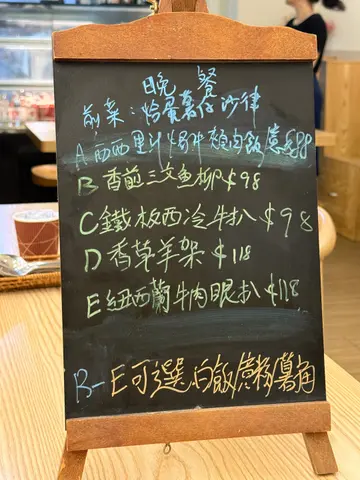 晚 餐
前菜：烚蛋薯仔沙律
A 西西里汁 牛頰肉飯 意 $88
B 香煎三文魚柳 $98
C 鐵板西冷牛扒 $98
D 香草羊架 $118
E 紐西蘭牛肉眼扒 $118
B-E可選白飯/意粉/薯角